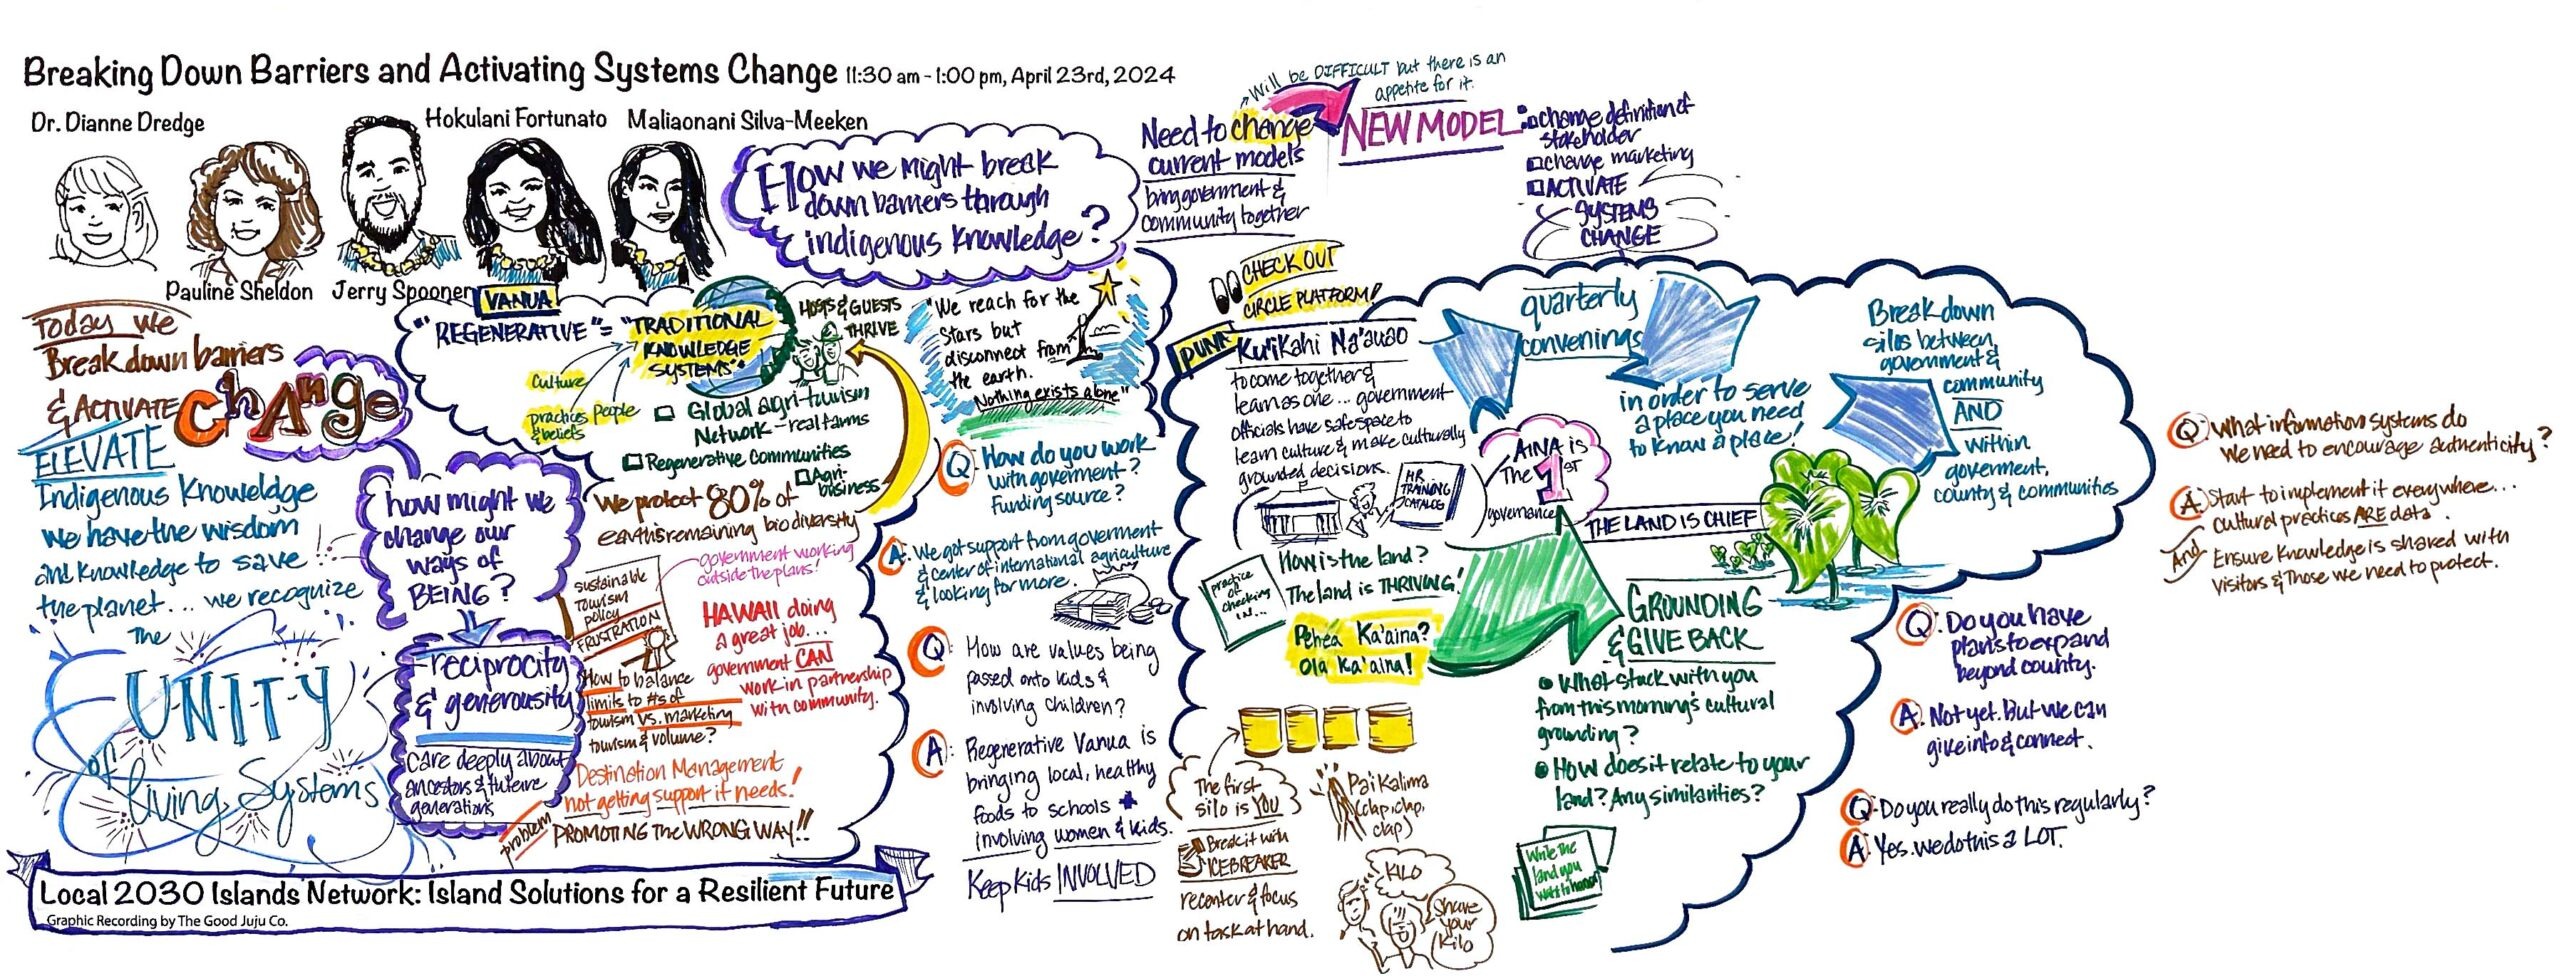 Breaking Down Barriers and Activating Systems Change 11:30 am - 1:00 pm, April 23rd, 2024
Dr. Dianne Dredge
Hokulani Fortunato
Maliaonani Silva-Meeken
Pauline Sheldon
Jerry Spooner
Today we
Break down barriers
& ACTIVATE
ChAngе
ELEVATE
Indigenous Knoweldge
we have the wisdom
and knowledge to save
the planet... we recognize
The
U-N-I-T-Y
of living Systems
how might we
change our
ways of
BEING?
reciprocity
& generousity
Care deeply about
ancestors & future
generations
How we might break
down barriers through
indigenous Knowledge?
VANUA
"REGENERATIVE" = "TRADITIONAL
KNOWLEDGE
SYSTEMS"
Culture
practices
& beliefs
People
HOSTS & GUESTS
THRIVE
Global agri-tourism
Network - real farms
Regenerative Communities
Agri-
business
We protect 80% of
earths remaining bio diversity
sustainable
Tourism
policy
FRUSTRATION
government working
outside the plans!
HAWAII doing
a great job...
government CAN
work in partnership
with community.
How to balance
limits to #s of
tourism vs. marketing
tourism & volume?
Destination Management
not getting support it needs!
problem
PROMOTING THE WRONG WAY!!
"We reach for the
Stars but
disconnect from
the earth.
Nothing exists alone"
Q: How do you work
with goverment?
Funding source?
A: We got support from goverment
& center of international agriculture
& looking for more.
Q: How are values being
passed onto kids &
involving children?
A: Regenerative Vanua is
bringing local, healthy
foods to schools +
involving women & kids.
Keep Kids INVOLVED
Need to change
current models
bring government &
community together
Will be DIFFICULT but there is an
appetite for it.
NEW MODEL:
change definition of
stakeholder
change marketing
ACTIVATE
SYSTEMS
CHANGE
CHECK OUT
CIRCLE PLATFORM!
Ku'iKahi Na'auao
to come together &
learn as one... government
officials have safe space to
learn culture & make culturally
grounded decisions.
HR
TRAINING
CATALOG
quarterly
convenings
in order to serve
a place you need
to know a place!
Break down
silos between
government &
community
AND
within
goverment,
county & communities
AINA is
The 1ST
governance
THE LAND IS CHIEF
practice
of
checking
in...
How is the land?
The land is THRIVING!
Pehea Ka'aina?
Ola Ka'aina!
GROUNDING
& GIVE BACK
What stuck with you
from this morning's cultural
grounding?
How does it relate to your
land? Any similarities?
Write the
land you
want to honor!
The first
silo is YOU
Break it with
ICEBREAKER
recenter & focus
on task at hand.
Pai Kalima
(clap, clap,
clap)
KILO
Share
your
Kilo
Q: What information systems do
we need to encourage authenticity?
A: Start to implement it everywhere...
Cultural practices ARE data.
And Ensure Knowledge is shared with
visitors & Those we need to protect.
Q: Do you have
plans to expand
beyond county.
A: Not yet. But we can
give info & connect.
Q: Do you really do this regularly?
A: Yes. we do this a LOT.
Local 2030 Islands Network: Island Solutions for a Resilient Future
Graphic Recording by The Good Juju Co.